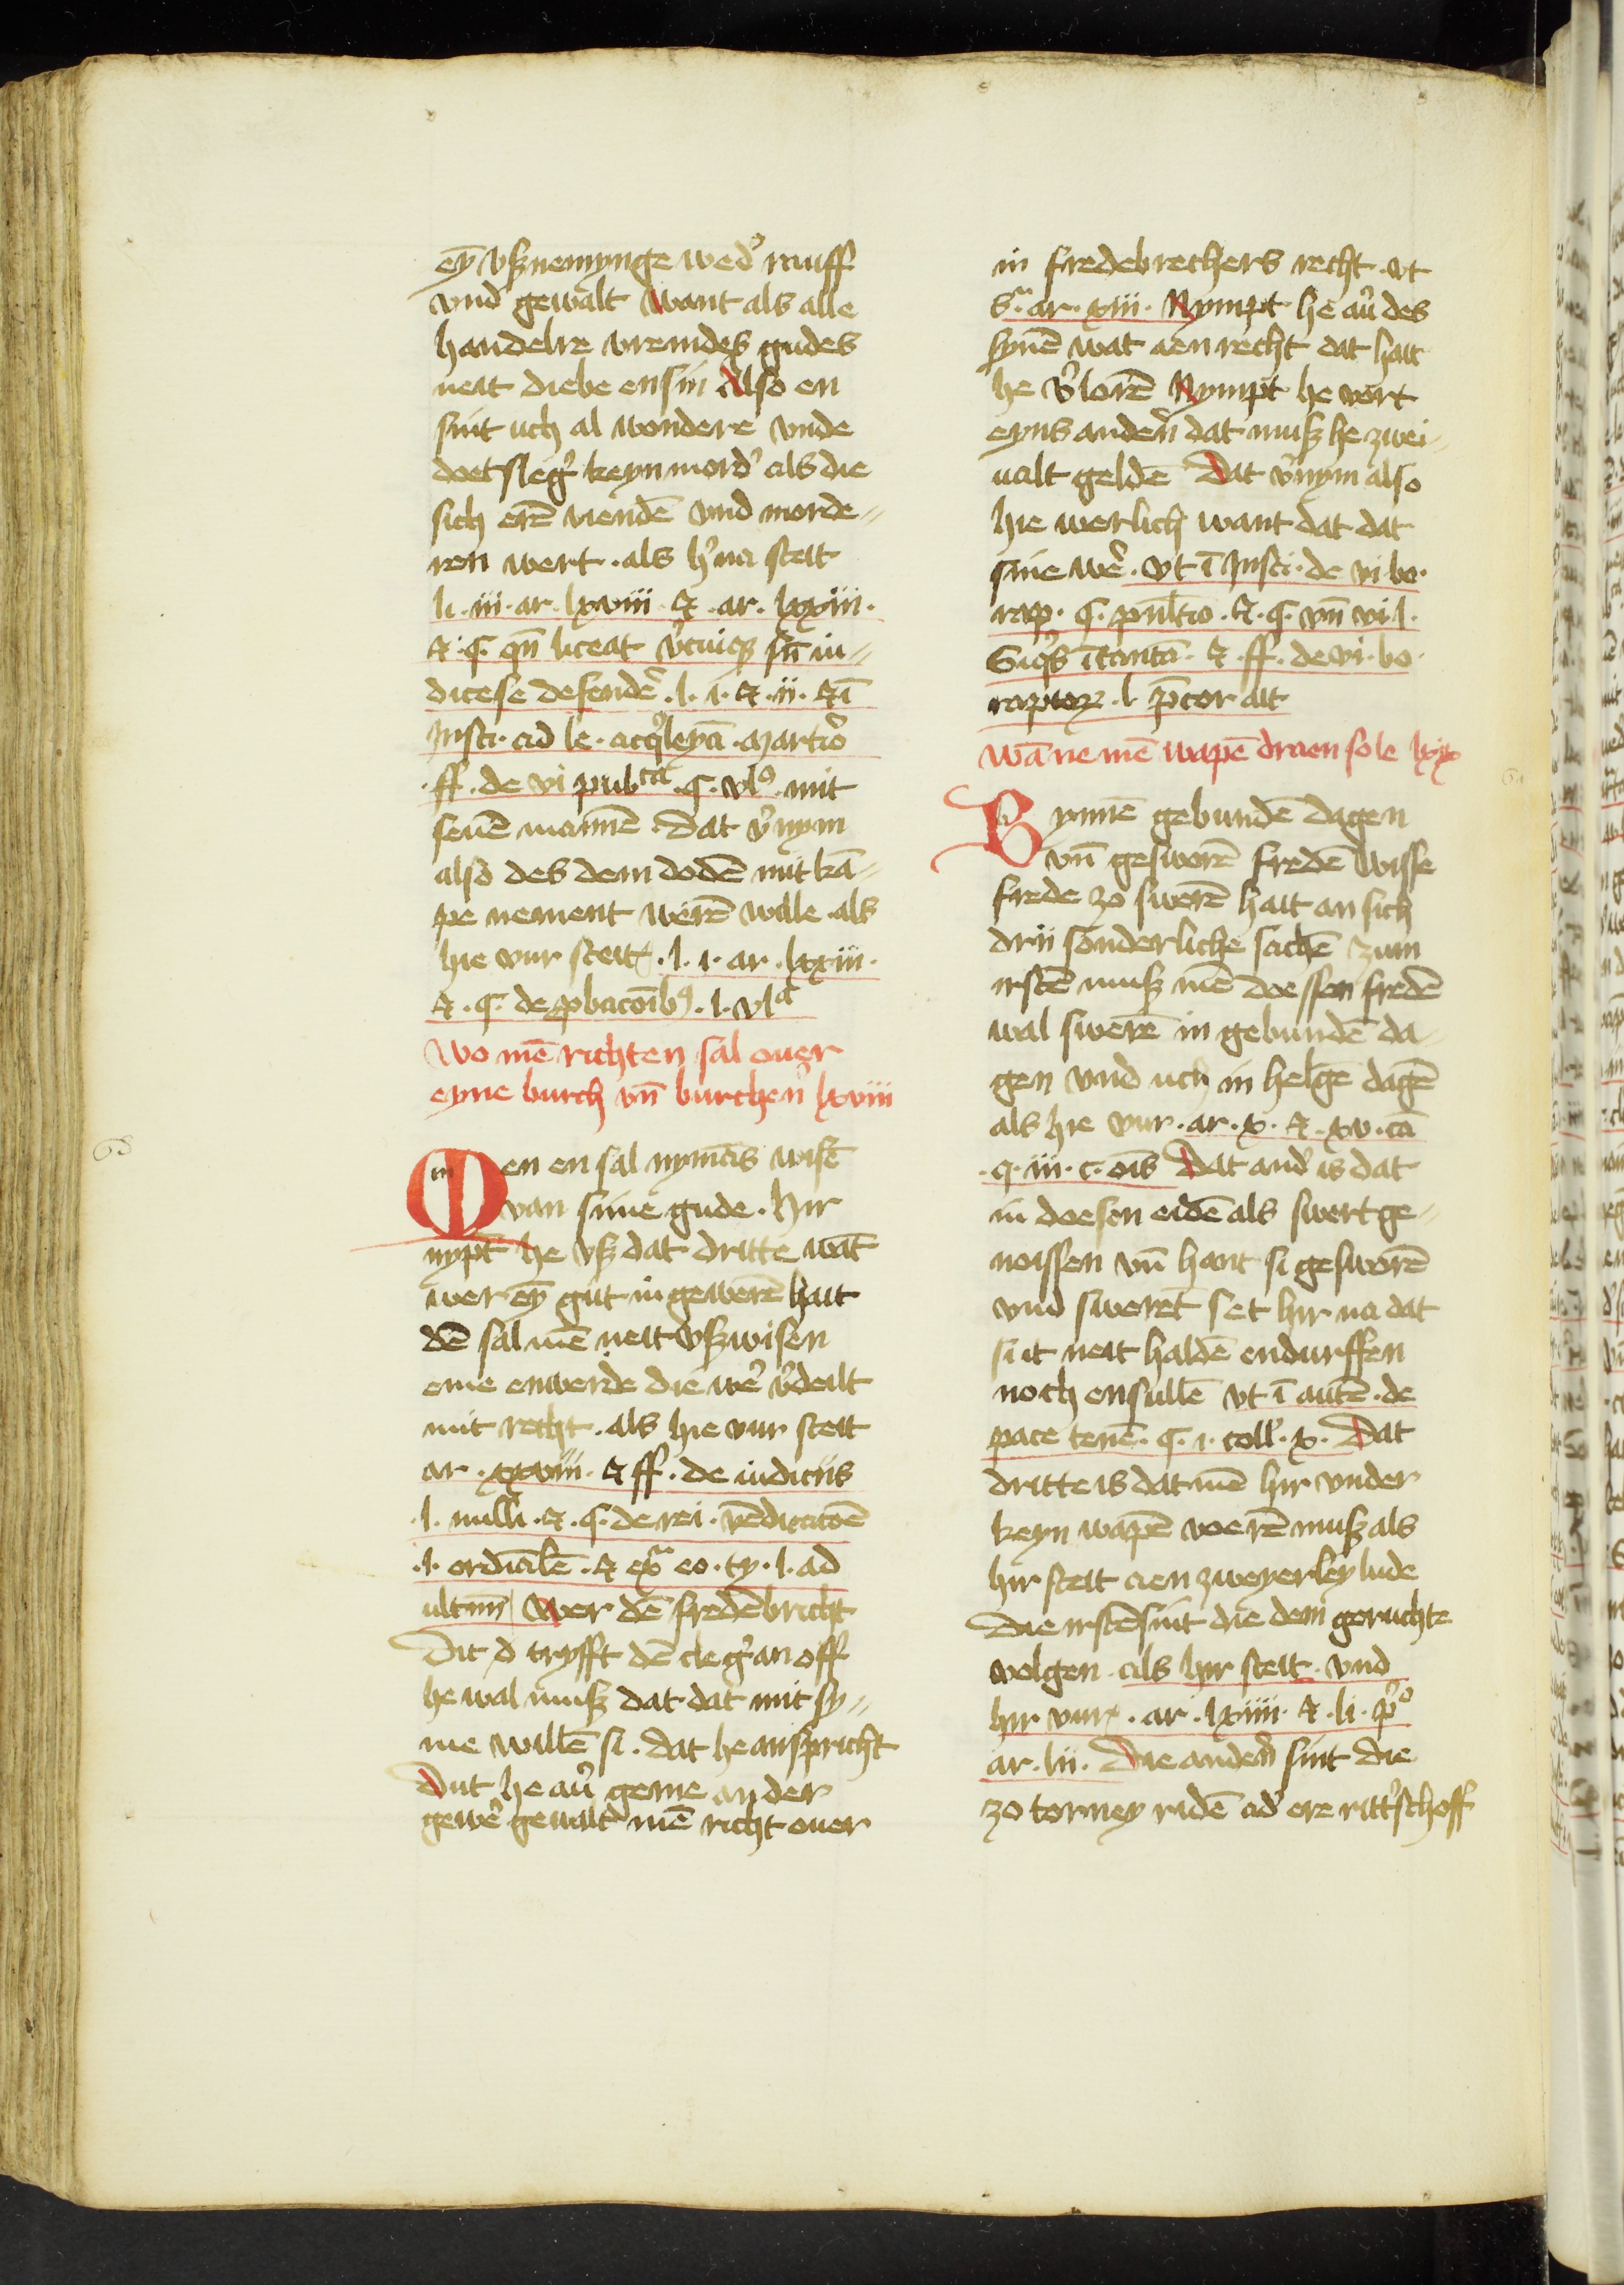 eȳ vßnemynge wed' muff
vnd gewalt want als alle
handelre vremdes gudes
neit diebe ensin Also en
sint uch al wondere vnde
doetsleg' keyn mord' als die
sich erē viendē vnd morde//
ren wert . als h'na steit
li . iii . ar . lxviii . & . ar . lxxiii .
& . C . qn̄ liceat v̓cuiqz sn̄ iu//
dice se defendē . l . i . & . ii . & ī
Insti . ad le . acq̓leyā . martio
. ff . de vi pub^ca . C . vl^o . mit
seuē mannē . dat v̓nym
also des dem dodē mit kā//
pe nement werē wille . als
hie vur steit . l . i . ar . lxiii .
& . C . de p̱bacoīb^9 . l . vl^a
Wo mē richten sal ouer
eyne burch vn̄ burchen̄ lxviii
68
Men en sal nymās wisē
van sime gude . Hir
nypt he vß dat dritte wat
wer eȳ gut in gewerē hait
dē sal mē neit vßwisen
eme enwerde die we' v̓deilt
mit recht . als hie vur steit
ar . xxviii . & ff . de iudiciis
. l . nulli . & . C . de rei . vēdicacōē
. l . ordīalē . & ex^a eo . ty . l . ad
ultim̄ Wer dē fredē bricht
Dit d tryfft dē cleg' an off
he wal muß dat dat mit sy//
me willē si . dat he anspricht
Dut he au' geme an der
gewe' gewalt mē richt ouer
in fredebrechers recht . vt
s^a . ar . xiii . Nympt he au' des
synē wat aen recht dat hait
he v̓lorē Nympt he vort
eyns anden̄ dat muß he zwei//
ualt geldē Dat v̓nym also
hie werlich want dat dat
sine we' . vt ī Insti . de vi . bo .
rap . C . pn̄ltio . & . C . vn̄ vi . l .
Siq̓s ī tantā . & . ff . de vi . bo .
raptoꝝ . l . p̄tor ait
Wā ne mē wapē draen sole lxix
69
Bynnē gebundē dagen
vn̄ gesworē fredē Wisse
frede zo swerē hait an sich
drii sonderliche sachē zum
irstē muß mē doessen fredē
wal swerē in gebundē da-
gen vnd uch in helgē dagē
als hie vur . ar . x . & . xv . cā
. q . iii . c . oīs Dat and' is dat
in doesen eidē als swertge//
noissen vn̄ hant si gesworē
vnd sweret set hir na dat
si it neit haldē endurffen
noch ensullē vt ī autē . de
pace tenē . C . i . coll' . x . Dat
dritte is dat mē hir vnder
keyn wapē voerē muß als
hir steit aen zweyerley lude
Die irstē sint die dem geruchte
volgen . als hir steit . vnd
hir vur . ar . lxiiii . & . li . p^o
ar . lii . Die anden̄ sint die
zo torney ridē ad' ere ritt'schoff